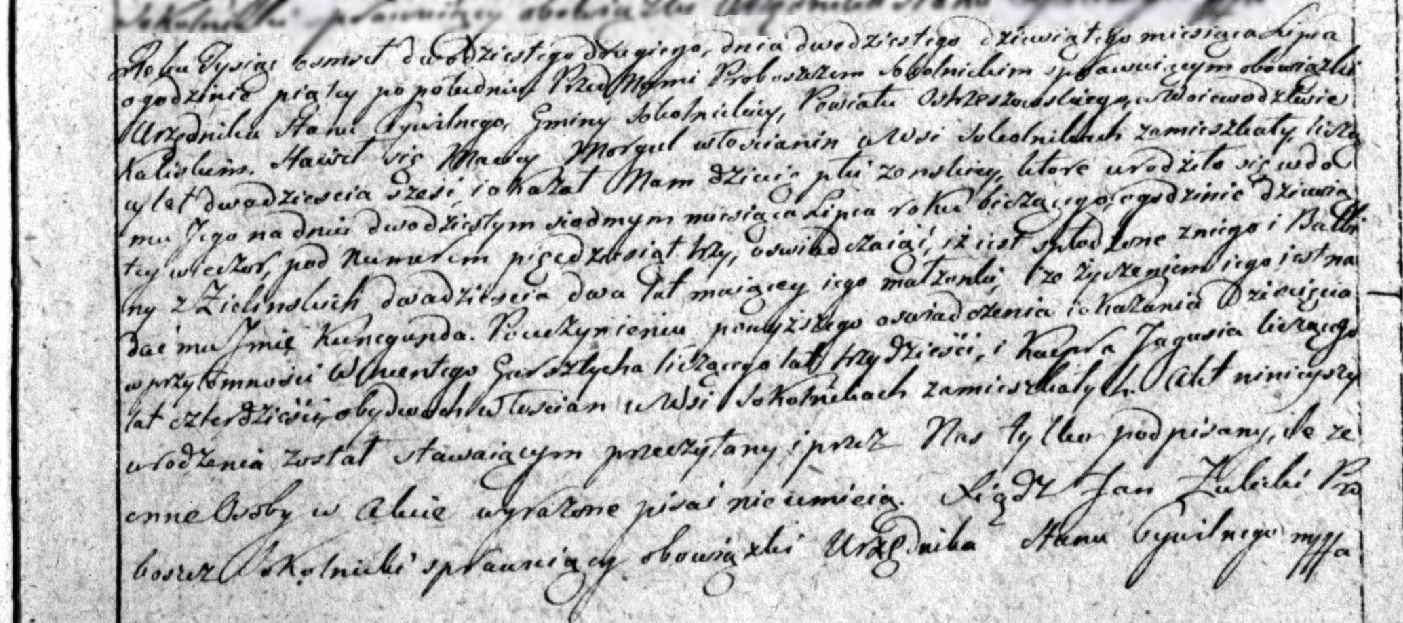 Sokolnicki sprawuiący obowiązki Urzędnika Stanu
Roku Tysiąc osmset dwudziestego drugiego, dnia dwudziestego dziewiątego miesiąca Lipca
o godzinie piąty po południu Przed Nami Proboszczem Sokolnickim sprawuiącym obowiązki
Urzędnika Stanu Cywilnego, Gminy Sokolnickiey, Powiatu Ostrzeszowskiego, w Woiewodztwie
Kaliskim. Stawił się Maciey Morgul włościanin w Wsi Sokolnikach zamieszkały, liczą
cy lat dwadziescia szesć, i okazał Nam dziecię płci zenskiey, ktore urodziło się w do
mu Jego na dniu dwudziestym siodmym miesiąca Lipca roku bieżącego, o godzinie dziewią
tey wieczor, pod Numerem pięcdziesiąt trzy, oswiadczaiąc, iż iest spłodzone z niego i Balbi
ny z Zielinskich dwadziescia dwa lat maiącey iego małzonki, ze życzeniem iego iest na
dac mu Jmię Kunegunda. Po uczynieniu powyższego oswiadczenia i okazania Dziecięcia
w przytomności Wincentego Gursztycha liczącego lat trzydzieści, i Kacpra Jagusia liczącego
lat czterdzieści, obydwoch włoscian w Wsi Sokolnikach zamieszkałych. Akt ninieyszy
urodzenia został stawaiącym przeczytany i przez Nas tylko podpisany, ile ze
inne Osoby w Akcie wyrażone pisać nie umieią. Xiądz Jan Zulicki Pro
boszcz Sokolnicki sprawuiący obowiązki Urzędnika Stanu Cywilnego